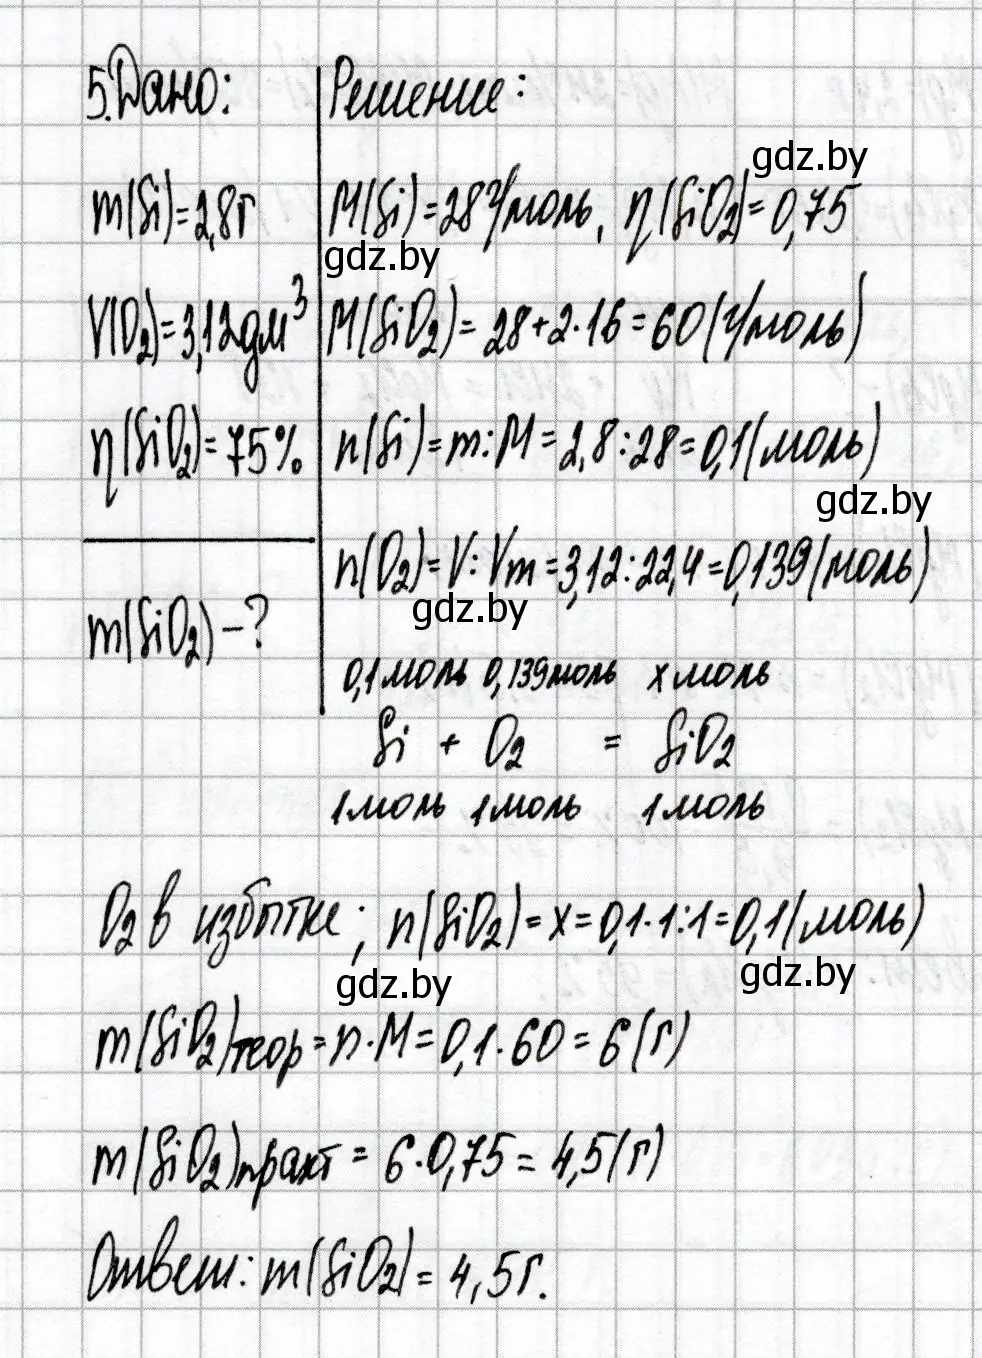 5. Дано:
m(Si)=2,8г
V(O₂)=3,12дм³
η(SiO₂)=75%
m(SiO₂)-?
Решение:
gdz.by
M(Si)=28г/моль, η(SiO₂)=0,75
gdz.by
M(SiO₂)=28+2·16=60(г/моль)
n(Si)=m:M=2,8:28=0,1(моль)
gdz.by
n(O₂)=V:Vm=3,12:22,4=0,139(моль)
gdz.by
0,1моль 0,139моль x моль
Si + O₂ = SiO₂
1моль 1моль 1моль
O₂ в избытке; n(SiO₂)=x=0,1·1:1=0,1(моль)
gdz.by gdz.by
m(SiO₂)теор=n·M=0,1·60=6(г)
m(SiO₂)практ=6·0,75=4,5(г)
Ответ: m(SiO₂)=4,5г.